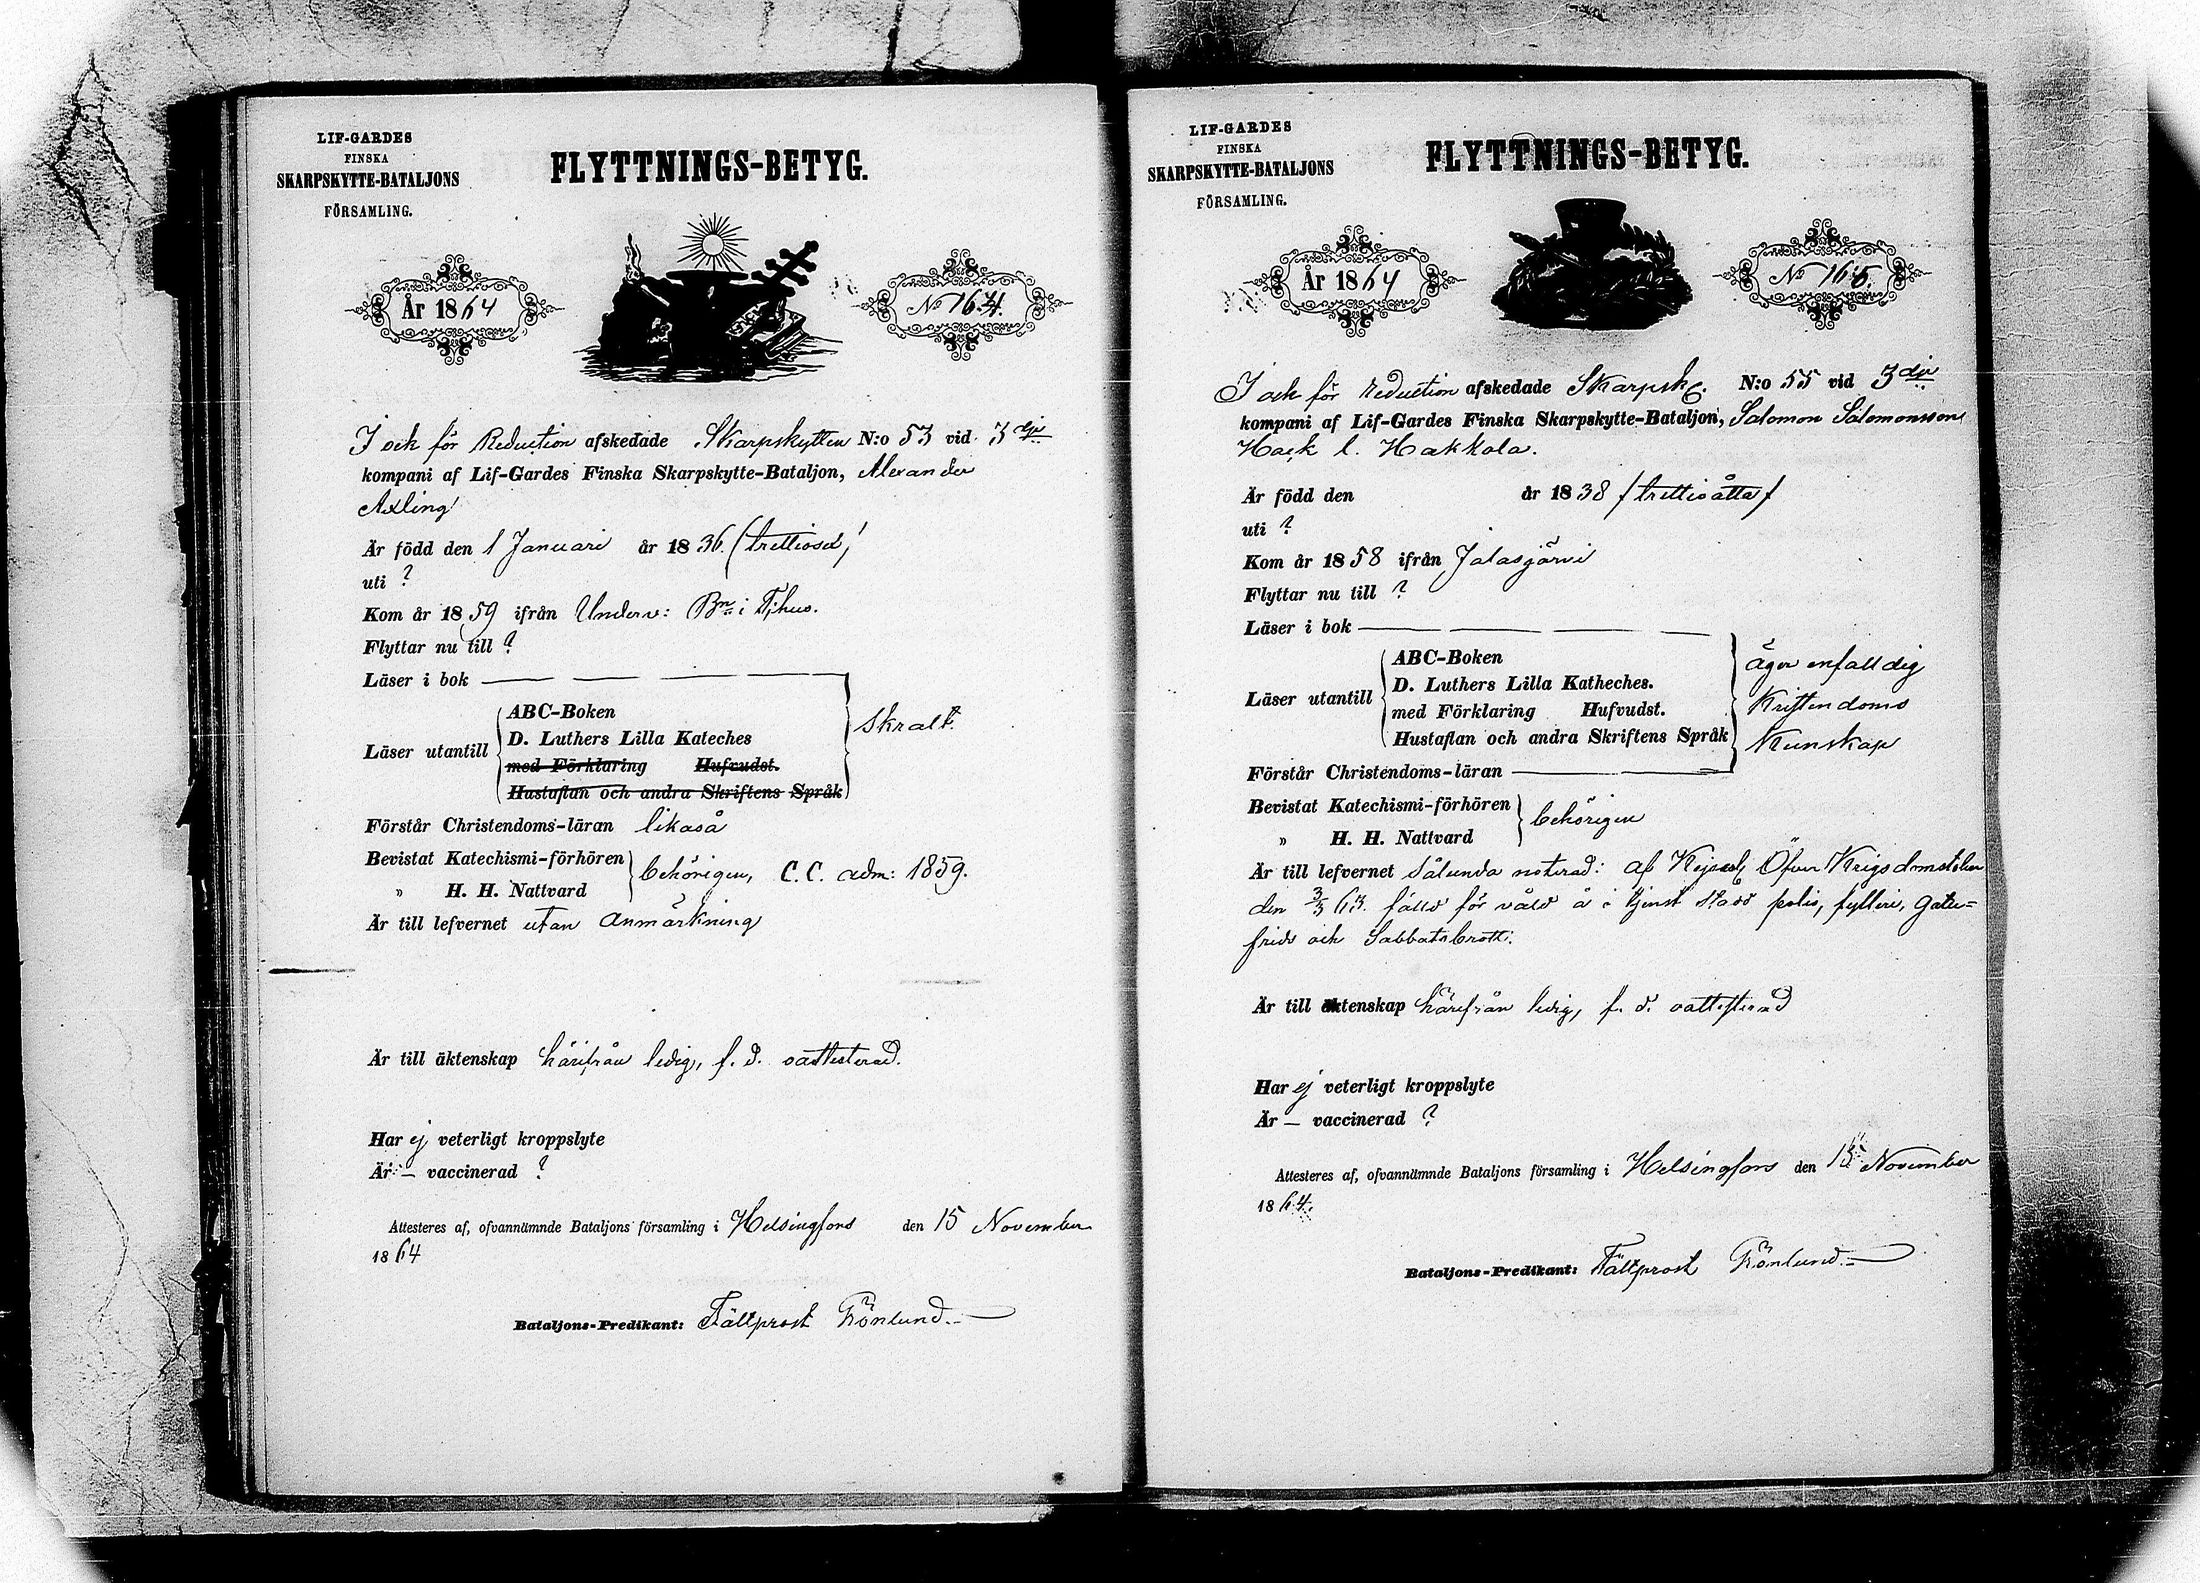 LIF-GARDES
FINSKA
SKARPSKYTTE-BATALJONS
FÖRSAMLING.
FLYTTNINGS-BETYG.
År 1864
No 164.
I och för Reduction afskedade Skarpskytten N:o 53 vid 3dje
kompani af Lif-Gardes Finska Skarpskytte-Bataljon, Alexander
Axling
Är född den 1 Januari år 1836. (trettiosex)
uti ?
Kom år 1859 ifrån Underv: Bn i T:hus.
Flyttar nu till ?
Läser i bok
Läser utantill
ABC-Boken
D. Luthers Lilla Kateches
med Förklaring Hufvudst.
Hustaflan och andra Skriftens Språk
skralt.
Förstår Christendoms-läran likaså
Bevistat Katechismi-förhören
" H. H. Nattvard
behörigen, C. C. adm: 1859.
Är till lefvernet utan anmärkning
Är till äktenskap härifrån ledig, f. d. oattesterad.
Har ej veterligt kroppslyte
Är — vaccinerad ?
Attesteres af, ofvannämnde Bataljons församling i Helsingfors den 15 November
1864
Bataljons-Predikant: Fältprost Grönlund.
LIF-GARDES
FINSKA
SKARPSKYTTE-BATALJONS
FÖRSAMLING.
FLYTTNINGS-BETYG.
År 1864
No 165.
I och för reduction afskedade Skarpsk. N:o 55 vid 3dje
kompani af Lif-Gardes Finska Skarpskytte-Bataljon, Salomon Salomonsson
Hack l. Hakkola.
Är född den år 1838 (trettioåtta)
uti ?
Kom år 1858 ifrån Jalasjärvi
Flyttar nu till ?
Läser i bok
Läser utantill
ABC-Boken
D. Luthers Lilla Katheches.
med Förklaring Hufvudst.
Hustaflan och andra Skriftens Språk
äger enfalldig
Kristendoms
Kunskap
Förstår Christendoms-läran
Bevistat Katechismi-förhören
" H. H. Nattvard
behörigen
Är till lefvernet sålunda noterad: af Kejserl. Öfver Krigsdomstolen
den 3/3 63. fälld för våld å i tjenst stadd polis, fylleri, gatu-
frids och Sabbatsbrott.
Är till äktenskap härifrån ledig, f. d. oattesterad
Har ej veterligt kroppslyte
Är — vaccinerad ?
Attesteres af, ofvannämnde Bataljons församling i Helsingfors den 15 November
1864.
Bataljons-Predikant: Fältprost Grönlund.